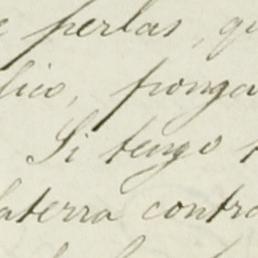 e perlas, qu
lico, ponga
Si tengo
laterra contra